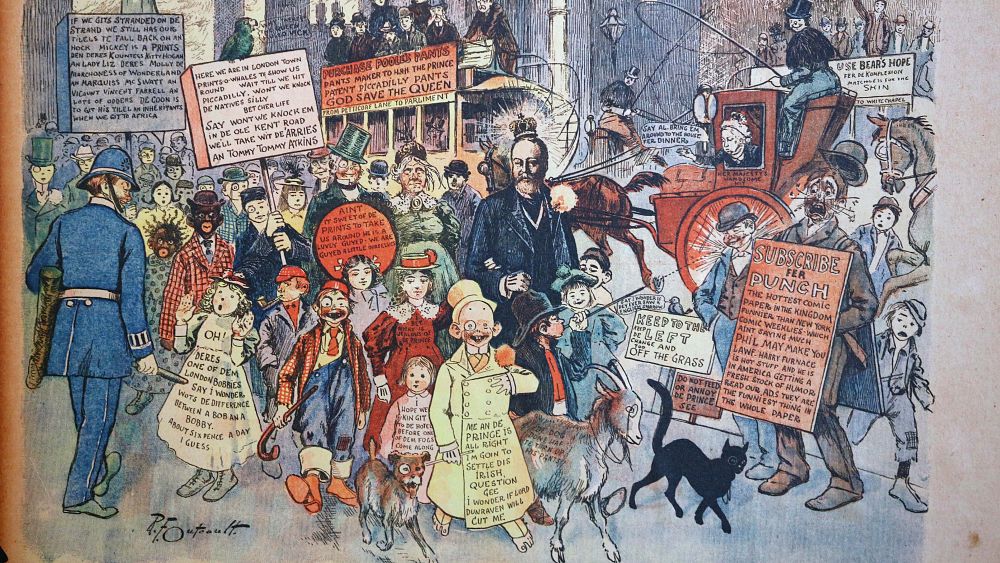 IF WE GITS STRANDED ON DE
STRAND WE STILL HAS OUR
TILELS TO FALL BACK ON
HOCK MICKEY IS A PRINTS
DEN DERES KOUNTESS KITTY HOGAN
AN LADY LIZ. DERES MOLLY DE
MARCHONESS OF WONDERLAND
AN MARQUIS MC SWATT AN
VICOUNT VINCENT FARRELL AN
LOTS OF ODDERS DE COON IS
TO GIT HIS TILEL AN INHERITANTS
WHEN WE GIT TO AFRICA
HERE WE ARE IN LONDON TOWN
PRINTS-O-WHALES TO SHOW US
ROUND WAIT TILL WE HIT
PICCADILLY. WONT WE KNOCK
DE NATIVES SILLY
BET CHER LIFE
SAY WONT WE KNOCK EM
IN DE OLE KENT ROAD
WE'LL TAKE WIT DE 'ARRIES
AN TOMMY TOMMY ATKINS
PURCHASE POOLES PANTS
PANTS MAKER TO HRH THE PRINCE
PATENT PICCADILLY PANTS
GOD SAVE THE QUEEN
FROM PETTICOAT LANE TO PARLIMENT
SAY AL. BRING EM
AROUND TO THE HOUSE
FER DINNER
HER MAJESTY'S
HANDSOME
USE BEAR'S HOPE
FER DE KOMPLEXION
MATCHLESS FOR THE
SKIN
TO WHITECHAPEL
AINT
IT SWEET OF DE
PRINTS TO TAKE
US AROUND HE IS A
LUVLY GUYED. WE ARE
GUYED A LITTLE OURSELVES
OH!
DERES
ONE OF DEM
LONDON BOBBIES
SAY I WONDER
WOTS DE DIFFERENCE
BETWEEN A BOB AN A
BOBBY.
ABOUT SIX PENCE A DAY
I GUESS
I
HOPE WE
KIN GIT
TO DE HOTEL
BEFORE ONE
OF DEM FOGS
COME ALONG
ME AN DE
PRINCE IS
ALL RIGHT
I'M GOIN TO
SETTLE DIS
IRISH
QUESTION
GEE
I WONDER IF LORD
DUNRAVEN WILL
CUT ME
KEEP TO THE
LEFT
DE
CHANGE AND
OFF THE GRASS
DO NOT FEED
OR ANNOY
DE PRINCE
SEE
SUBSCRIBE
FER
PUNCH
THE HOTTEST COMIC
PAPER IN THE KINGDOM
FUNNIER THAN NEW YORK
COMIC WEEKLIES WHICH
AINT SAYING MUCH
PHIL MAY MAKE YOU
LAWF. HARRY FURNACE
IS HOT STUFF AND HE IS
IN AMERICA GETTING A
FRESH STOCK OF HUMOR
READ OUR ADS THEY ARE
THE FUNNIEST THING IN
THE WHOLE PAPER
R.F. Outcault